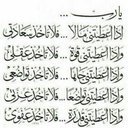 يارب ...
وإذا أعطيتني مالاً ... فلا تأخذ سعادتي
وإذا أعطيتني قوة ... فلا تأخذ عقلي
وإذا أعطيتني جاهاً ... فلا تأخذ تواضعي
وإذا أعطيتني ... فلا تأخذ
وإذا أعطيتني قدرة ... فلا تأخذ عفوي